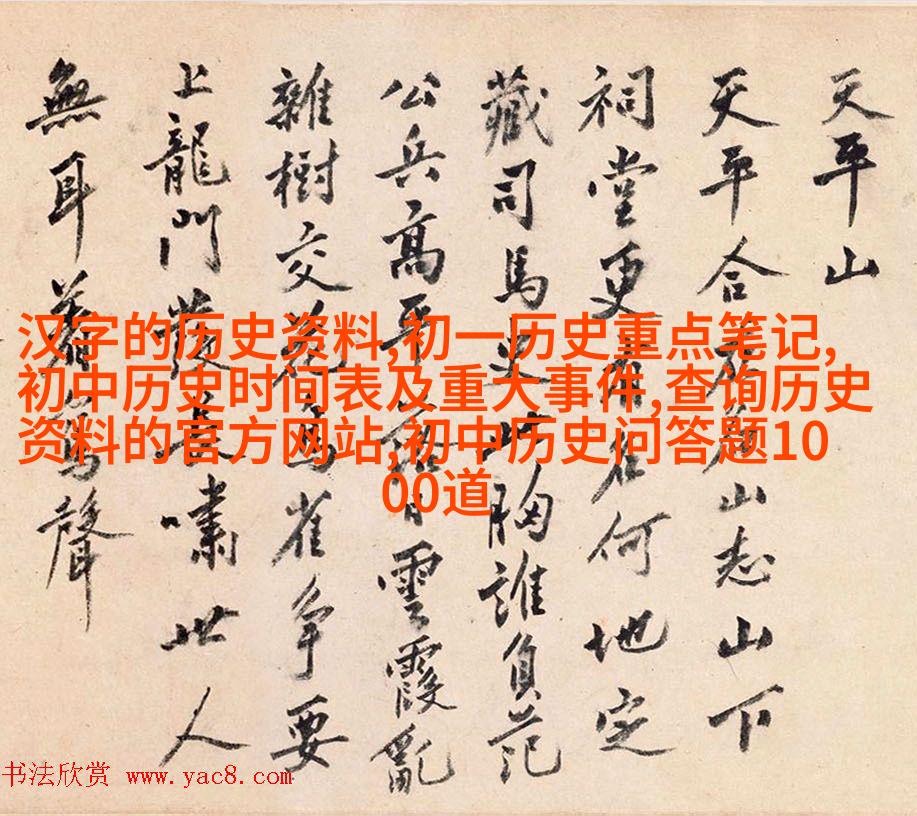 天平山
天平合山志山下
祠堂更何地定
藏司馬史胸誰負范
公兵高平落日雲霞亂
雜樹交花鳥雀爭要
上龍門發長嘯世人
無耳著聲
汉字的历史资料,初一历史重点笔记,
初中历史时间表及重大事件,查询历史
资料的官方网站,初中历史问答题10
00道
书法欣赏 www.yac8.com